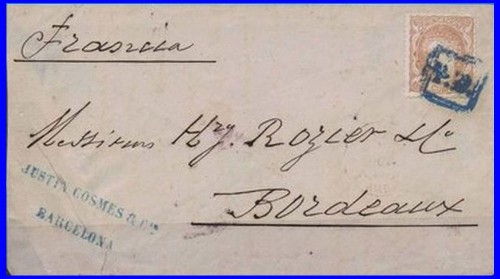 Francia
P.D.
Messieurs Hry. Rozier & Co
Bordeaux
JUSTIN COSMES & Cie
BARCELONA